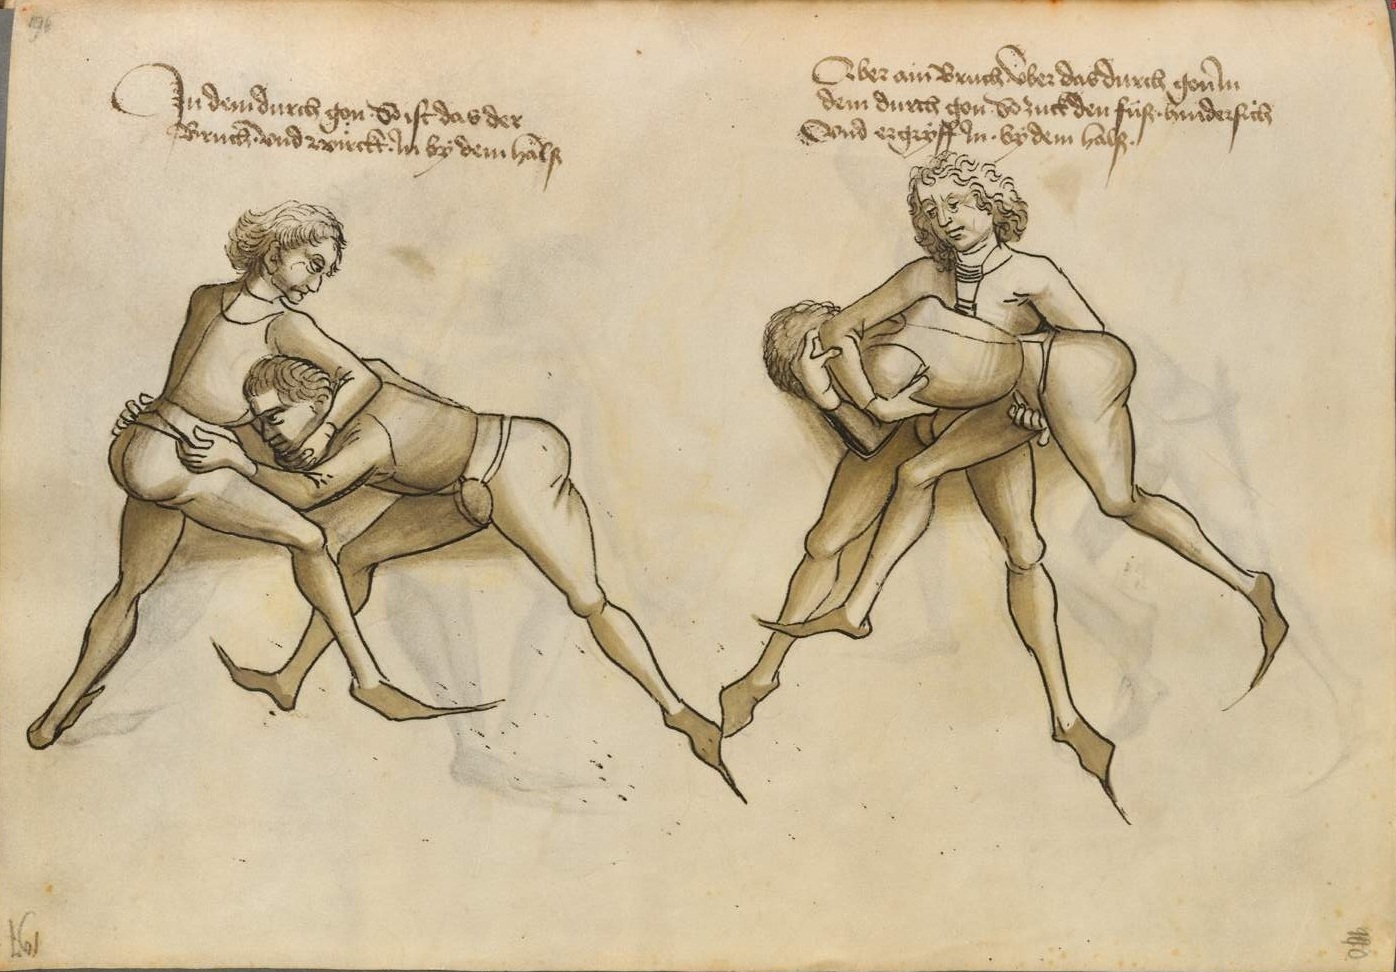 In dem durch gon · So ist das der
Bruch · vnd würckt · In by dem hälß
Aber ain Bruch Über das durch gon In
dem durch gon So zuck den füß · hindersich
Vnd ergryff In · by dem halß ·